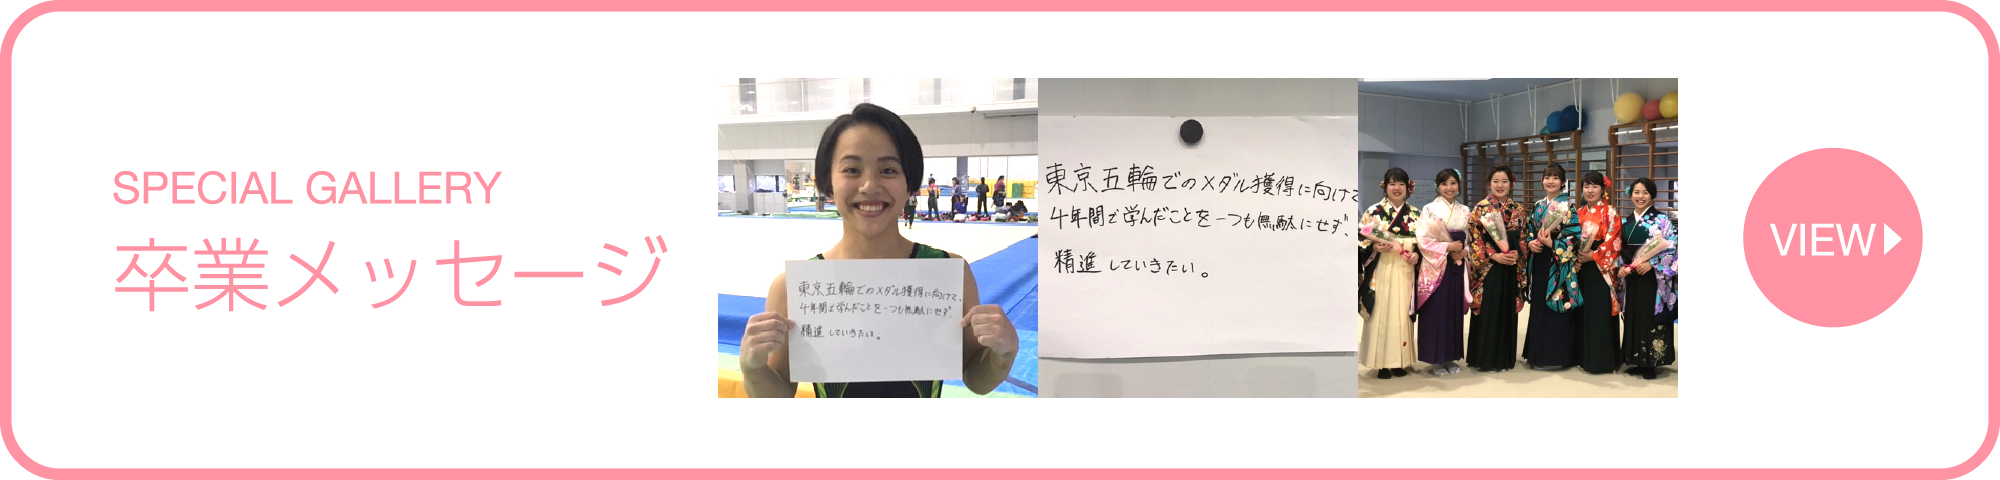 SPECIAL GALLERY
卒業メッセージ
東京五輪でのメダル獲得に向けて、
4年間で学んだことを一つも無駄にせず、
精進していきたい。
東京五輪でのメダル獲得に向けて
4年間で学んだことを一つも無駄にせず、
精進していきたい。
VIEW